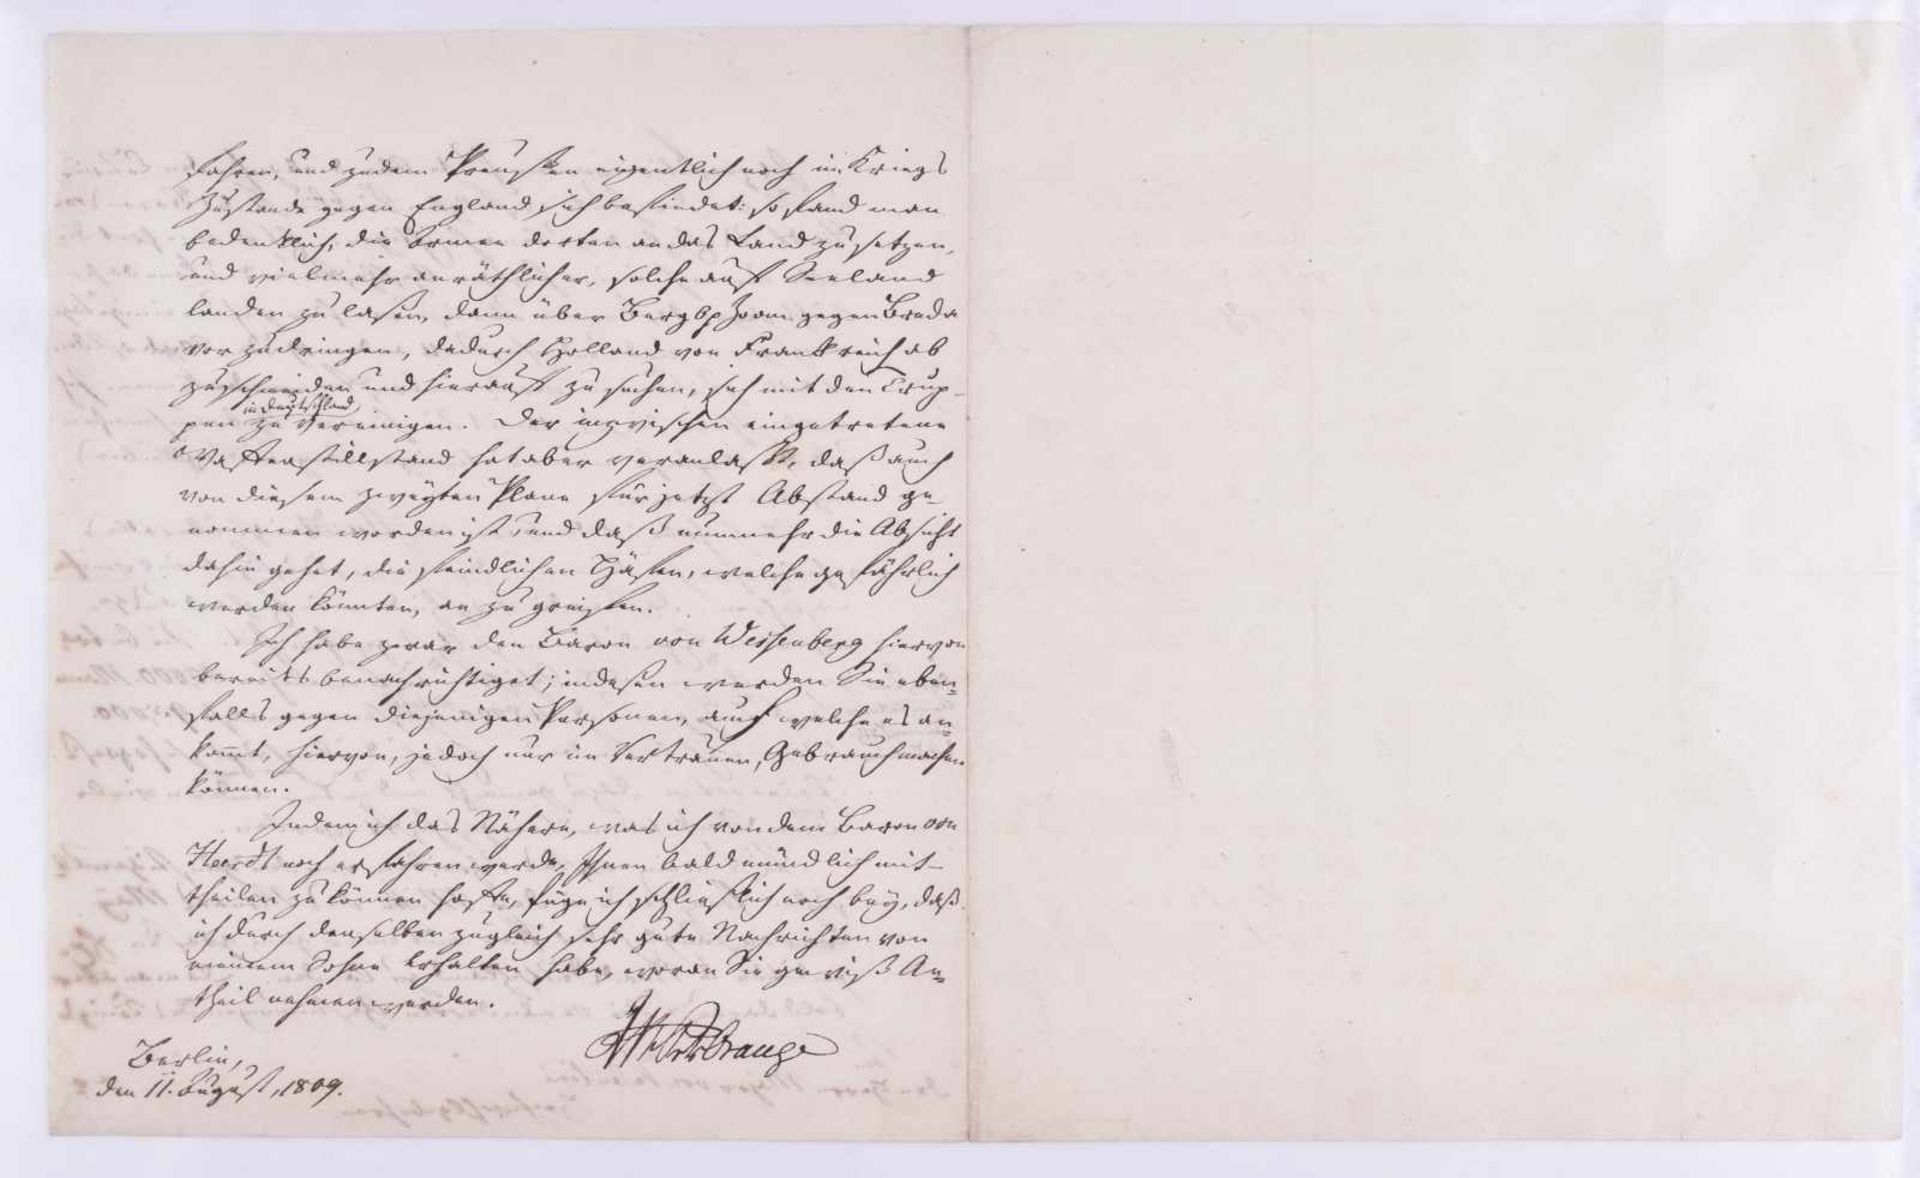 fahren, und zudem Preußen eigentlich noch im Kriegs
Zustande gegen England sich befindet: so fand man
bedenklich, die Armee dorten an das Land zu setzen,
und vielmehr anräthlicher, solche auf Seeland
landen zu laßen, dann über Berg op Zoom gegen Breda
vorzudringen, dadurch Holland von Frankreich ab
zuschneiden und hierauf zu suchen, sich mit den Trup-
in Deutschland
pen zu vereinigen. Der inzwischen eingetretene
Waffenstillstand hat aber veranlaßt, daß auch
von diesem zweyten Plane für jetzt Abstand ge-
nommen worden ist, und daß nunmehr die Absicht
dahin gehet, die feindlichen Häfen, welche gefährlich
werden könnten, an zu greiffen.
Ich habe zwar den Baron von Wessenberg hiervon
bereits benachrichtiget; indeßen werden Sie eben=
falls gegen diejenigen Personen, auf welche es an=
kommt, hiervon, jedoch nur im Vertrauen, Gebrauch machen
können.
Indem ich das Nähere, was ich von dem Baron von
Heerdt noch erfahren werde, Ihnen bald mündlich mit-
theilen zu können hoffe, füge ich schließlich noch bey, daß
ich durch denselben zugleich sehr gute Nachrichten von
meinem Sohne erhalten habe, woran Sie gewiß An=
theil nehmen werden.
Orange
Berlin,
den 11. August, 1809.